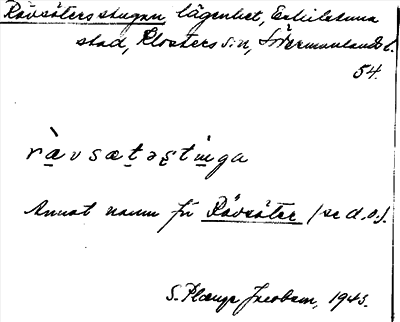 Rävsätersstugan lägenhet, Eskilstuna
stad, Klosters sn, Södermanlands l.
54.
rà̱vsæṯəṣṯṵ̀ga
Annat namn för Rävsäter (se d.o.).
S. Plænge Jacobson, 1943.